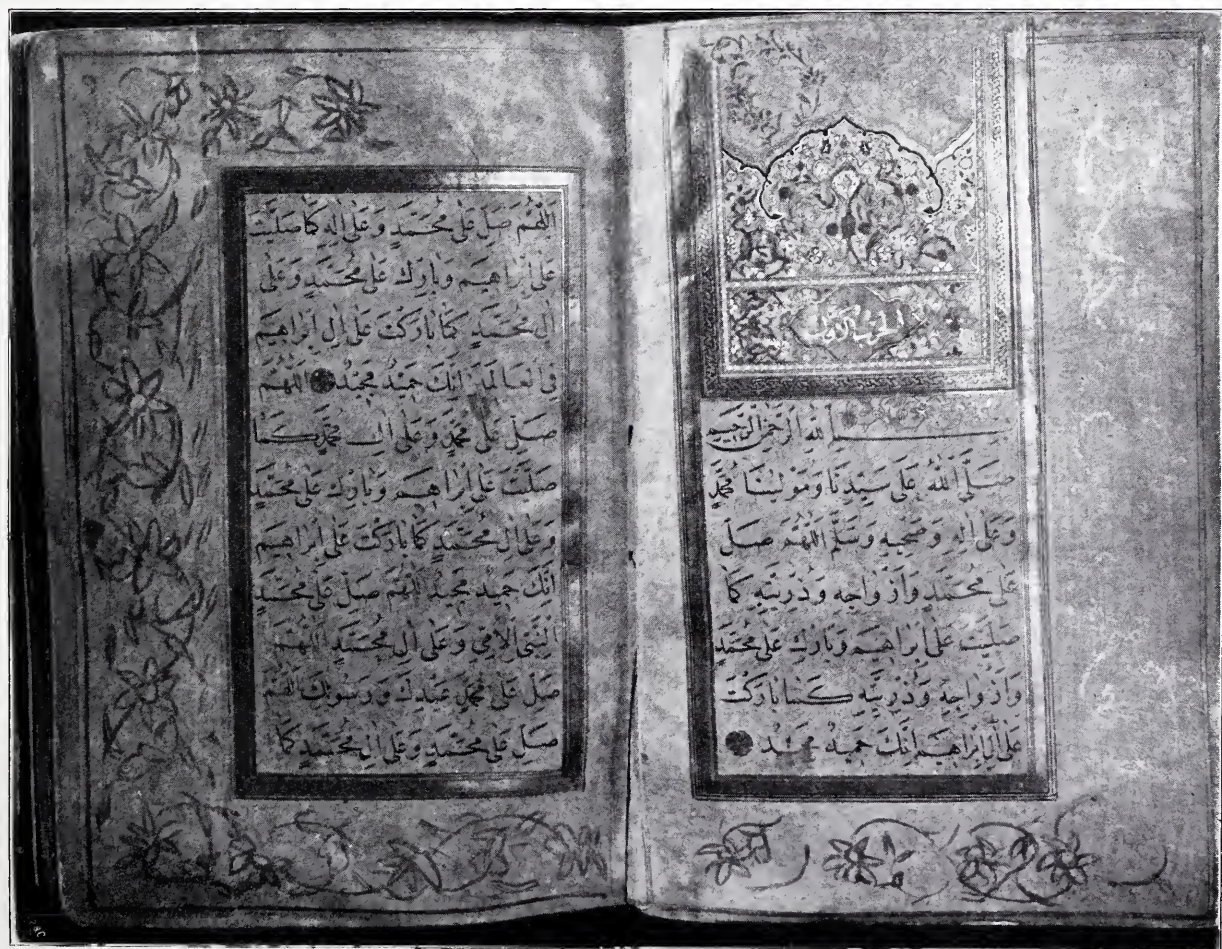 بسم الله الرحمن الرحيم
صَلَّى اللهُ عَلَى سَيِّدِنَا وَمَوْلٰينَا مُحَمَّدٍ
وَعَلَى اٰلِهِ وَصَحْبِهِ وَسَلَّمَ اَللّٰهُمَّ صَلِّ
عَلَى مُحَمَّدٍ وَاَزْوَاجِهِ وَذُرِّيَّتِهِ كَمَا
صَلَّيْتَ عَلَى اِبْرَاهِيمَ وَبَارِكْ عَلَى مُحَمَّدٍ
وَاَزْوَاجِهِ وَذُرِّيَّتِهِ كَمَا بَارَكْتَ
عَلَى اٰلِ اِبْرَاهِيمَ اِنَّكَ حَمِيدٌ مَجِيدٌ
اَللّٰهُمَّ صَلِّ عَلَى مُحَمَّدٍ وَعَلَى اٰلِهِ كَمَا صَلَّيْتَ
عَلَى اِبْرَاهِيمَ وَبَارِكْ عَلَى مُحَمَّدٍ وَعَلَى
اٰلِ مُحَمَّدٍ كَمَا بَارَكْتَ عَلَى اٰلِ اِبْرَاهِيمَ
فِى الْعَالَمِينَ اِنَّكَ حَمِيدٌ مَجِيدٌ اَللّٰهُمَّ
صَلِّ عَلَى مُحَمَّدٍ وَعَلَى اٰلِ مُحَمَّدٍ كَمَا
صَلَّيْتَ عَلَى اِبْرَاهِيمَ وَبَارِكْ عَلَى مُحَمَّدٍ
وَعَلَى اٰلِ مُحَمَّدٍ كَمَا بَارَكْتَ عَلَى اِبْرَاهِيمَ
اِنَّكَ حَمِيدٌ مَجِيدٌ اَللّٰهُمَّ صَلِّ عَلَى مُحَمَّدٍ
النَّبِىِّ الْاُمِّىِّ وَعَلَى اٰلِ مُحَمَّدٍ اَللّٰهُمَّ
صَلِّ عَلَى مُحَمَّدٍ عَبْدِكَ وَرَسُولِكَ اَللّٰهُمَّ
صَلِّ عَلَى مُحَمَّدٍ وَعَلَى اٰلِ مُحَمَّدٍ كَمَا